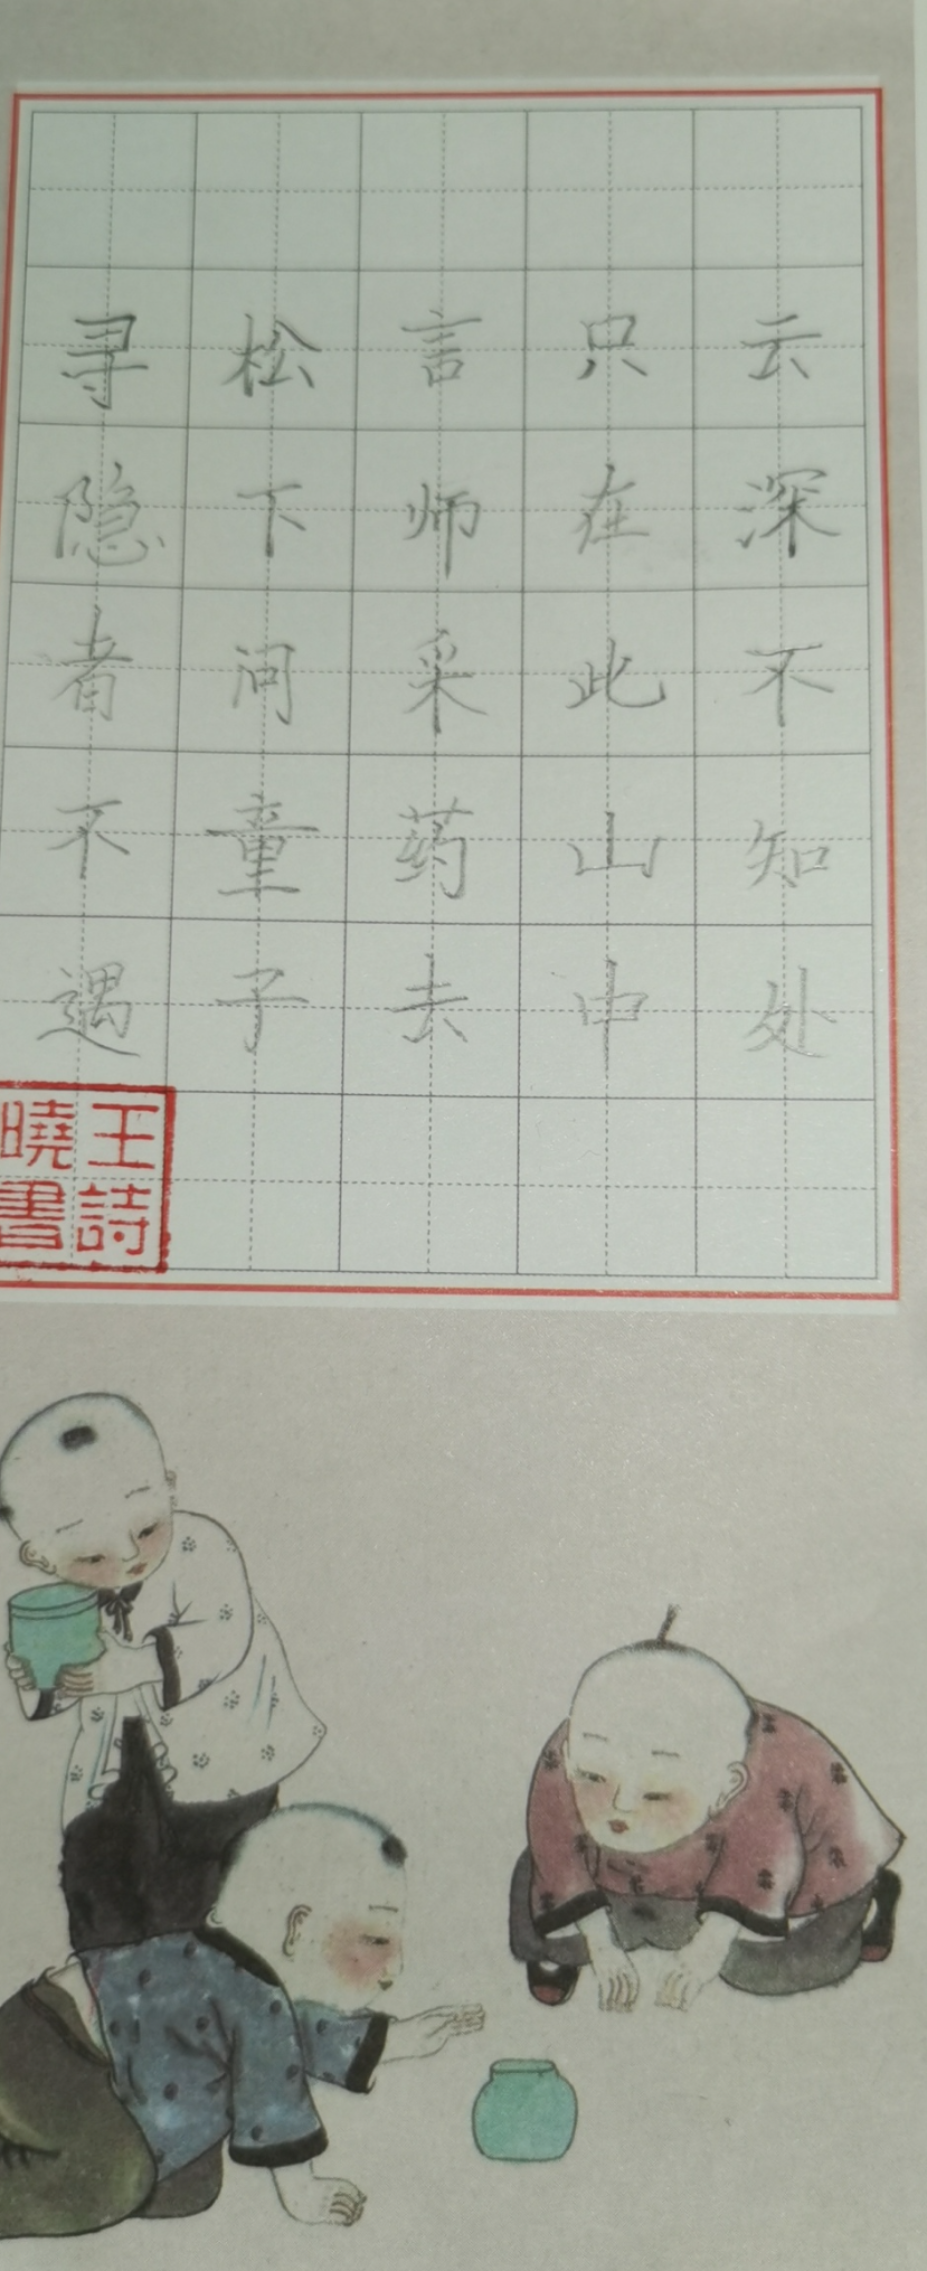 寻隐者不遇
松下问童子
言师采药去
只在此山中
云深不知处
王詩
曉書